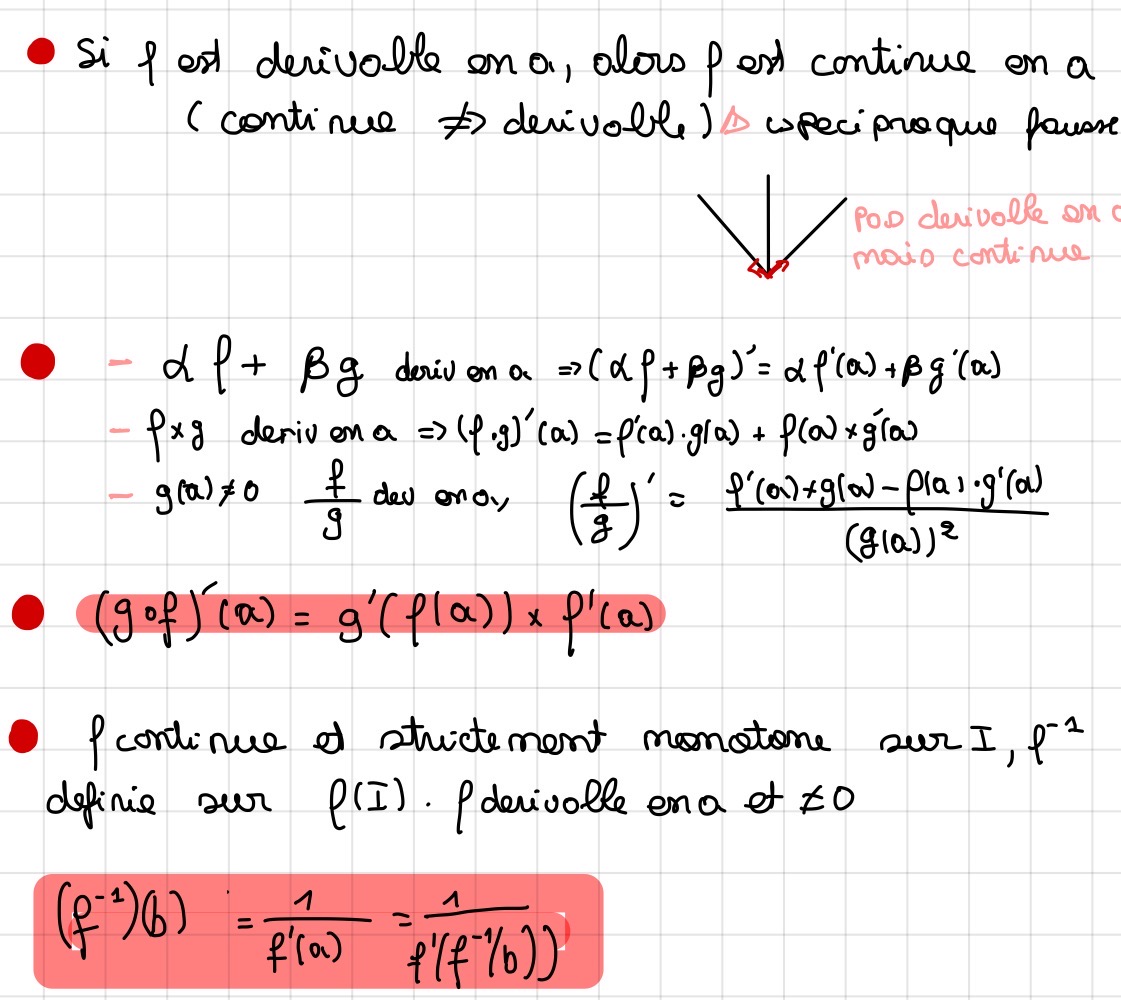 Si f est derivable en a, alors f est continue en a
( continue ≠> derivable ) ⚠ ↪ reciproque fausse
pas derivable en
mais continue
- αf + βg deriv en a => (αf + βg)' = αf'(a) + βg'(a)
- f×g deriv en a => (f·g)'(a) = f'(a)·g(a) + f(a)×g'(a)
- g(a) ≠ 0 f/g dev en a, (f/g)' = (f'(a)×g(a) - f(a)·g'(a)) / (g(a))²
(g∘f)'(a) = g'(f(a)) × f'(a)
f continue et strictement monotone sur I, f⁻¹
definie sur f(I). f derivable en a et ≠ 0
(f⁻¹)(b) = 1/f'(a) = 1/f'(f⁻¹(b))